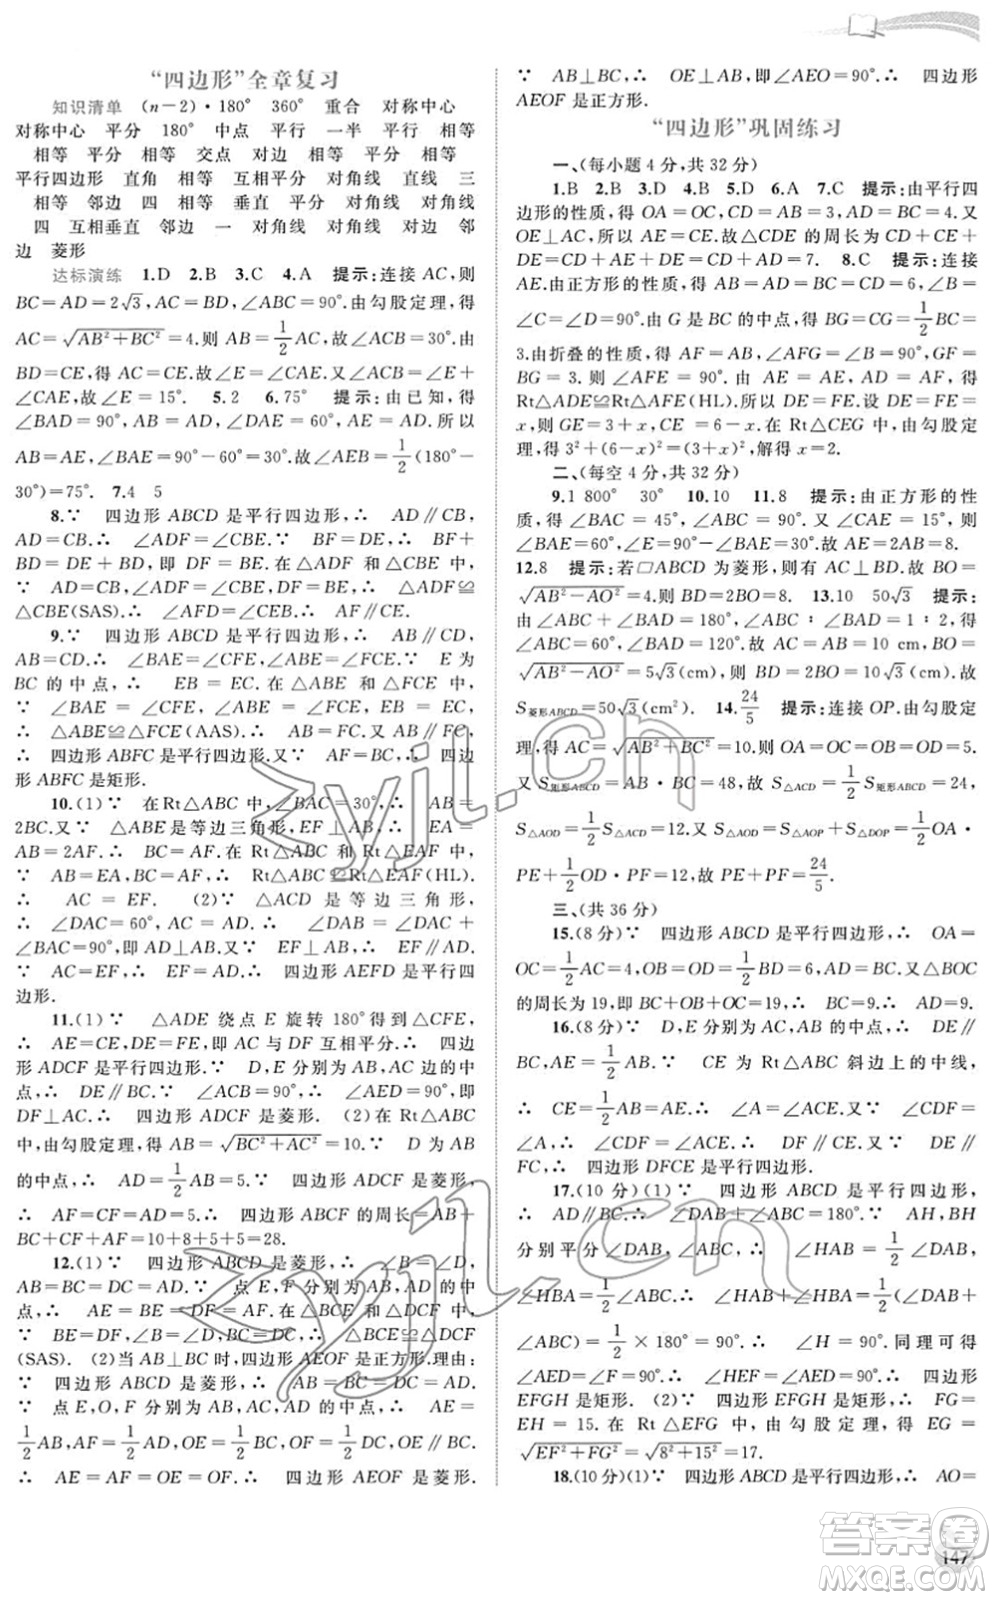 “四边形”全章复习
知识清单 (n－2)·180° 360° 重合 对称中心
对称中心 平分 180° 中点 平行 一半 平行 相等
相等 平分 相等 交点 对边 对边 相等 相等
平行四边形 直角 相等 互相平分 对角线 直线 三
相等 邻边 四 相等 垂直 平分 对角线 对角线
四 互相垂直 邻边 一 对角线 对角线 对角线 邻
边 菱形
达标演练 1.D 2.B 3.C 4.A 提示:连接 AC,则
BC=AD=2√3,AC=BD,∠ABC=90°.由勾股定理,得
AC=√(AB²+BC²)=4.则 AB=1/2AC,故∠ACB=30°.由
BD=CE,得 AC=CE.故∠E=∠CAE.又∠ACB=∠E+
∠CAE,故∠E = 15°. 5.2 6.75° 提示:由已知,得
∠BAD = 90°, AB = AD, ∠DAE = 60°, AE = AD. 所以
AB=AE,∠BAE=90°－60°=30°.故∠AEB=1/2(180°－
30°)=75°. 7.4 5
8.∵ 四边形 ABCD 是平行四边形,∴ AD∥CB,
AD=CB.∴ ∠ADF=∠CBE.∵ BF=DE,∴ BF+
BD = DE + BD,即 DF = BE.在△ADF 和△CBE 中,
∵ AD=CB,∠ADF=∠CBE,DF=BE,∴ △ADF≌
△CBE(SAS).∴ ∠AFD=∠CEB.∴ AF∥CE.
9.∵ 四边形 ABCD 是平行四边形,∴ AB∥CD,
AB=CD.∴ ∠BAE=∠CFE,∠ABE=∠FCE.∵ E 为
BC 的中点,∴ EB = EC.在△ABE 和△FCE 中,
∵ ∠BAE = ∠CFE, ∠ABE = ∠FCE, EB = EC,
∴ △ABE≌△FCE(AAS).∴ AB=CF.∵ AB∥CF,
∴ 四边形 ABFC 是平行四边形.∵ AF=BC,∴ 四边
形 ABFC 是矩形.
10.(1)∵ 在Rt△ABC 中,∠BAC=30°,∴ AB=
2BC.又∵ △ABE是等边三角形,EF⊥AB,∴ EA=
AB = 2AF.∴ AF = BC.在 Rt△ABC 和 Rt△EAF 中,
∵ AB=EA,BC=AF,∴ Rt△ABC≌Rt△EAF(HL).
∴ AC = EF. (2)∵ △ACD 是等边三角形,
∴ ∠DAC=60°, AC = AD.∴ ∠DAB = ∠DAC +
∠BAC=90°,即 AD⊥AB.又∵ EF⊥AB,∴ EF∥AD.
∵ AC=EF,∴ EF=AD.∴ 四边形 AEFD 是平行四
边形.
11.(1)∵ △ADE 绕点 E 旋转 180°得到△CFE,
∴ AE=CE,DE=FE,即 AC 与 DF 互相平分.∴ 四边
形 ADCF 是平行四边形.∵ D,E 分别为 AB,AC 的中点,
∴ DE∥BC.∵ ∠ACB=90°,∴ ∠AED=90°,即
DF⊥AC.∴ 四边形 ADCF 是菱形. (2)在Rt△ABC
中,由勾股定理,得 AB=√(BC²+AC²)=10.∵ D 为 AB
的中点,∴ AD=1/2AB=5.∵ 四边形 ADCF 是菱形,
∴ AF=CF=AD=5.∴ 四边形 ABCF 的周长=AB+
BC+CF+AF=10+8+5+5=28.
12.(1)∵ 四边形 ABCD 是菱形,∴ ∠B=∠D,
AB=BC=DC=AD.∵ 点 E,F 分别为 AB,AD 的中
点,∴ AE = BE = DF = AF.在△BCE 和△DCF 中,
∵ BE=DF,∠B=∠D,BC=DC,∴ △BCE≌△DCF
(SAS). (2)当 AB⊥BC 时,四边形 AEOF 是正方形.理由:
∵ 四边形 ABCD 是菱形,∴ AB = BC = DC = AD.
∵ 点 E,O,F 分别为 AB,AC,AD 的中点,∴ AE=
1/2AB,AF=1/2AD,OE=1/2BC,OF=1/2DC,OE∥BC.
∴ AE = AF = OE = OF.∴ 四边形 AEOF 是菱形.
∵ AB⊥BC,∴ OE⊥AB,即∠AEO=90°.∴ 四边形
AEOF 是正方形.
“四边形”巩固练习
一、(每小题 4 分,共 32 分)
1.B 2.B 3.D 4.B 5.D 6.A 7.C 提示:由平行四
边形的性质,得 OA=OC,CD=AB=3,AD=BC=4.又
OE⊥AC,所以 AE=CE.故△CDE 的周长为 CD+CE+
DE=CD+AE+DE=CD+AD=7. 8.C 提示:连接
AE.由正方形的性质,得 AB=BC=AD=CD=6,∠B=
∠C=∠D=90°.由 G 是 BC 的中点,得 BG=CG=1/2BC=
3.由折叠的性质,得 AF=AB,∠AFG=∠B=90°,GF=
BG = 3.则∠AFE = 90°.由 AE = AE, AD = AF,得
Rt△ADE≌Rt△AFE(HL).所以 DE=FE.设 DE=FE=
x,则 GE=3+x,CE=6－x.在 Rt△CEG 中,由勾股定
理,得 3²+(6－x)²=(3+x)²,解得 x=2.
二、(每空 4 分,共 32 分)
9.1 800° 30° 10.10 11.8 提示:由正方形的性
质,得∠BAC = 45°,∠ABC = 90°.又∠CAE = 15°,则
∠BAE=60°,∠E=∠BAC－∠BAE=30°.故 AE=2AB=8.
12.8 提示:若▱ABCD 为菱形,则有 AC⊥BD.故 BO=
√(AB²－AO²)=4.则 BD=2BO=8. 13.10 50√3 提示:
由∠ABC+∠BAD=180°,∠ABC∶∠BAD=1∶2,得
∠ABC=60°,∠BAD=120°.故 AC=AB=10 cm,BO=
√(AB²－AO²)=5√3(cm),则 BD=2BO=10√3(cm).故
S菱形ABCD=50√3(cm²). 14.24/5 提示:连接 OP.由勾股定
理,得 AC=√(AB²+BC²)=10.则 OA=OC=OB=OD=5.
又 S矩形ABCD=AB·BC=48,故 S△ACD=1/2S矩形ABCD=24,
S△AOD=1/2S△ACD=12.又 S△AOD=S△AOP+S△DOP=1/2OA·
PE+1/2OD·PF=12,故 PE+PF=24/5.
三、(共 36 分)
15.(8分)∵ 四边形 ABCD 是平行四边形,∴ OA=
OC=1/2AC=4,OB=OD=1/2BD=6,AD=BC.又△BOC
的周长为 19,即 BC+OB+OC=19,∴ BC=9.∴ AD=9.
16.(8分)∵ D,E分别为AC,AB 的中点,∴ DE∥
BC,AE=1/2AB.∵ CE 为 Rt△ABC 斜边上的中线,
∴ CE=1/2AB=AE.∴ ∠A=∠ACE.又∵ ∠CDF=
∠A,∴ ∠CDF=∠ACE.∴ DF∥CE.又∵ DE∥
FC,∴ 四边形 DFCE 是平行四边形.
17.(10 分)(1)∵ 四边形 ABCD 是平行四边形,
∴ AD∥BC.∴ ∠DAB+∠ABC=180°.∵ AH,BH
分别平分∠DAB,∠ABC,∴ ∠HAB=1/2∠DAB,
∠HBA=1/2∠ABC.∴ ∠HAB+∠HBA=1/2(∠DAB+
∠ABC)=1/2×180°=90°.∴ ∠H=90°.同理可得
∠AED=90°.∴ ∠HEF=∠AED=90°.∴ 四边形
EFGH 是矩形. (2)∵ 四边形 EFGH 是矩形,∴ FG=
EH = 15.在 Rt△EFG 中,由勾股定理,得 EG =
√(EF²+FG²)=√(8²+15²)=17.
18.(10分)(1)∵ 四边形 ABCD是平行四边形,∴ AO=
147
答案圈
MXQE.COM
zyjl.cn
zyjl.cn